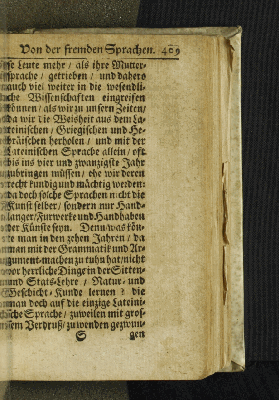 Von der fremden Sprachen. 409
se Leute mehr / als ihre Mutter-
sprache / getrieben / und dahero
auch viel weiter in die wesentli-
che Wissenschaften eingreifen
können / als wir zu unsern Zeiten /
da wir die Weisheit aus dem La-
teinischen / Griegischen und He-
bräischen herholen / und mit der
Lateinischen Sprache allein / oft
bis ins vier und zwanzigste Jahr
zubringen müssen / ehe wir deren
recht kundig und mächtig werden:
da doch solche Sprachen nicht die
Kunst selber / sondern nur Hand-
langer / Furwerke und Handhaben
der Künste seyn. Denn was kön-
te man in den zehen Jahren / da
man mit der Grammatik und Ar-
gument-machen zu tuhn hat / nicht
vor herrliche Dinge in der Sitten-
und Stats-Lehre / Natur- und
Geschicht-Kunde lernen? die
man doch auf die einzige Lateini-
sche Sprache / zuweilen mit gros-
sem Verdruß / zu wenden gezwun-
S gen